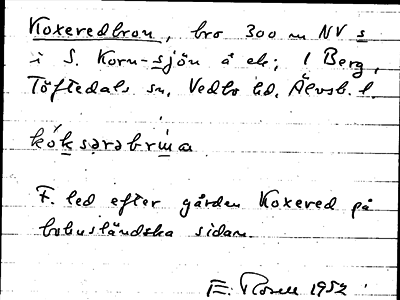 Koxeredbron, bro 300 m NV s
i S. Korn-sjön å ek; 1 Berg,
Töftedals sn, Vedbo hd, Älvsb. l.
kóksərəbrùa
F. led efter gården Koxered på
bohusländska sidan.
E. Rosell 1952